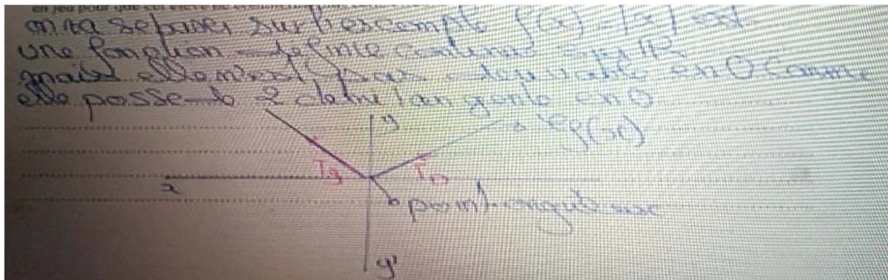 on va se baser sur l'exemple f(x) = |x| est
une fonction définie continue sur IR
mais elle n'est pas dérivable en 0 comme
elle possede 2 demi tangente en 0
y
Cf(x)
Tg
TD
x
point anguleuse
y'